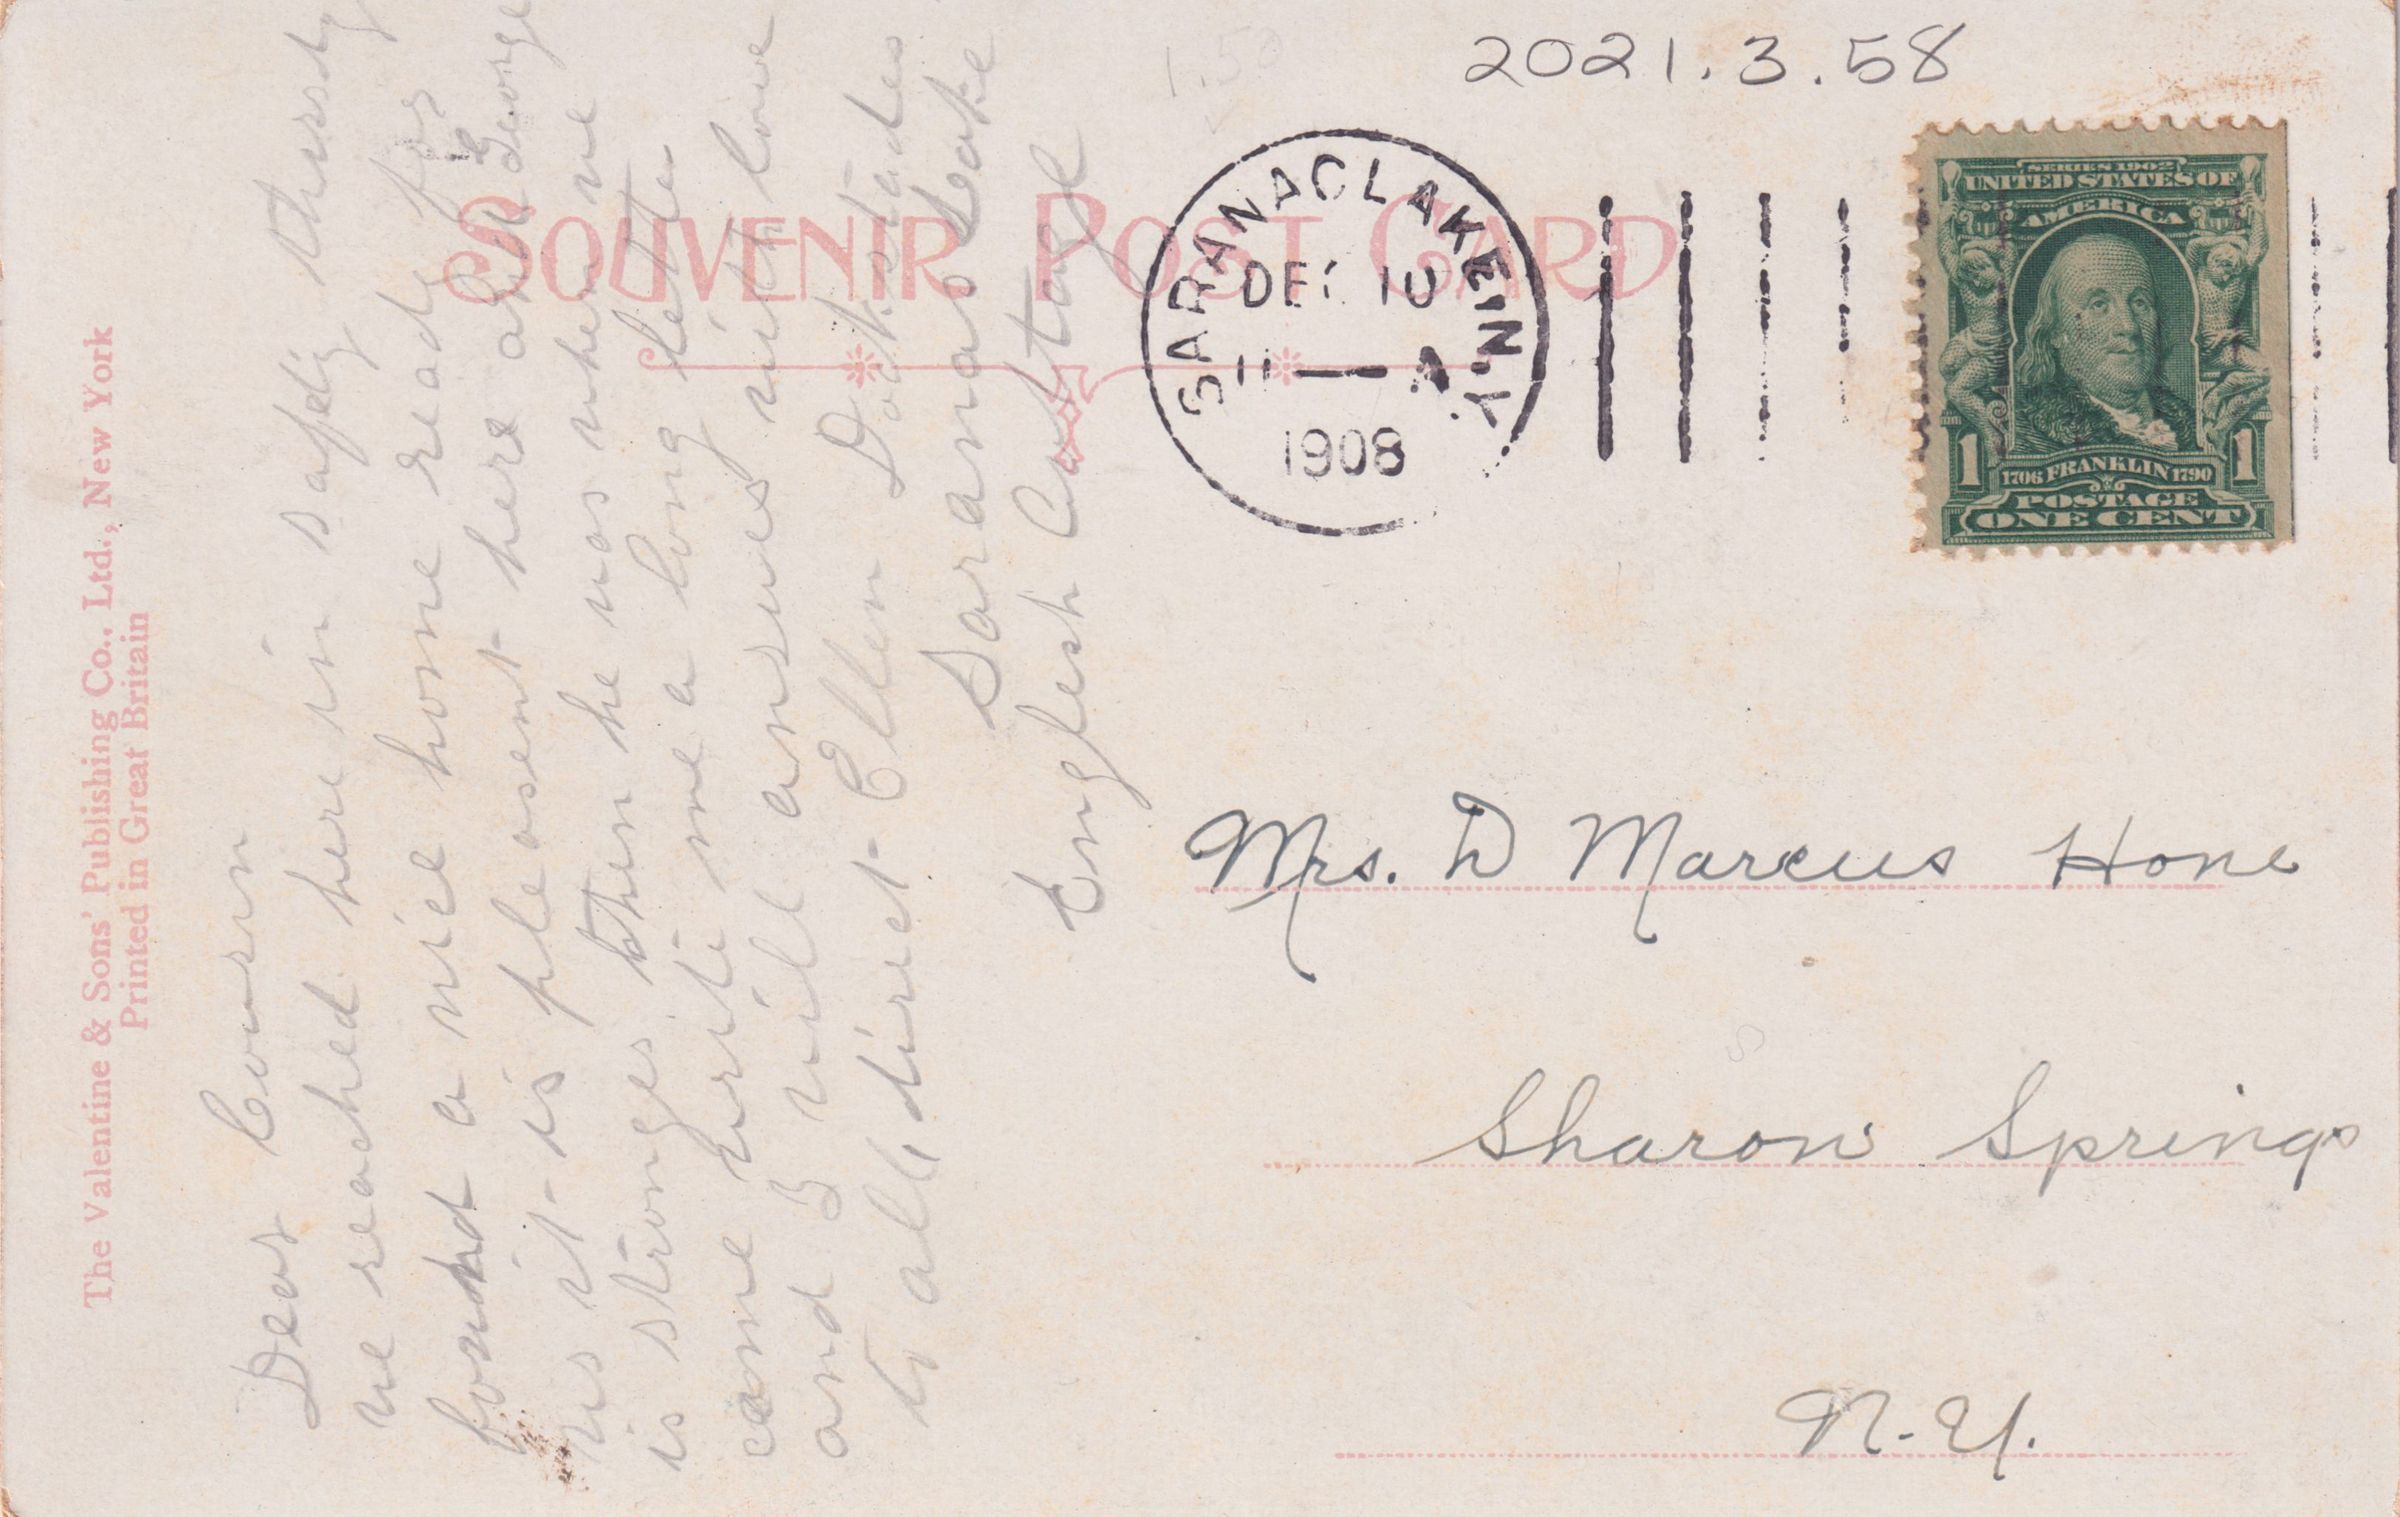 2021.3.58
SOUVENIR POST CARD
SARANAC LAKE, N.Y.
DEC 10
11 — A
1908
SERIES 1902
UNITED STATES OF
AMERICA
1 1706 FRANKLIN 1790 1
POSTAGE
ONE CENT
The Valentine & Sons' Publishing Co., Ltd., New York
Printed in Great Britain
Dear Cousin
we reached here in safty thursdy
found a nice home ready for
us it is pleasent here and George
is stronger then he was when we
came write me a long letter
and I will answer with love
to all direct Ellen
Saranac Lake
English Cottage
Mrs. D Marcus Hone
Sharon Springs
N.Y.